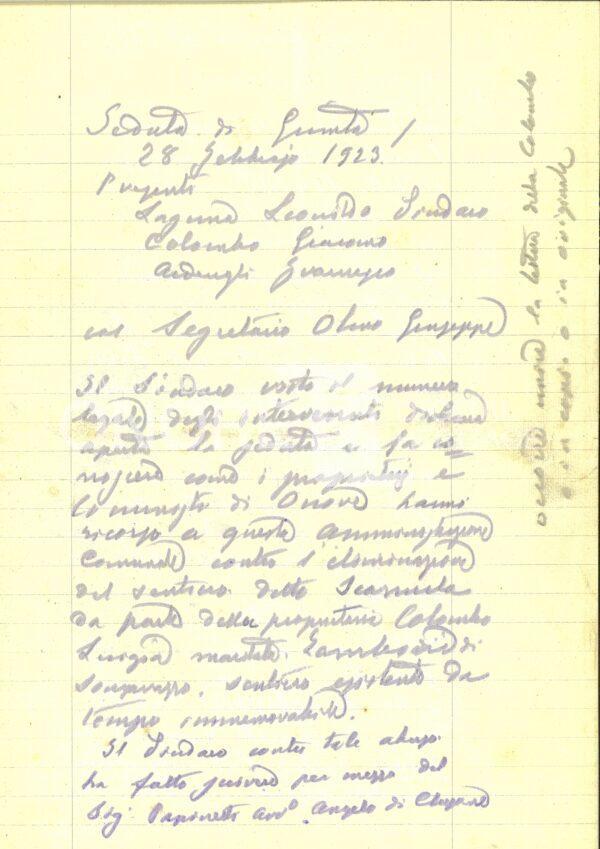 Seduta di Giunta
28 Febbraio 1923.
Presenti
Laguna Leonildo Sindaco
Colombo Giacomo
Ardenghi
col Segretario Olmo Giuseppe
Il Sindaco visto il numero
legale degli intervenuti dichiara
aperta la seduta e fa co-
noscere come i proprietarj e
di hanno
ricorso a questa Amministrazione
Comunale contro l'eliminazione
del sentiero detto
da parte della proprietaria Colombo
Luigia maritata di
sentiero esistente da
tempo immemorabile.
Il Sindaco contro tale abuso
ha fatto scrivere per mezzo del
Sig. Avv.o Angelo di
occorre la lettera della Colombo
o in copia o in originale